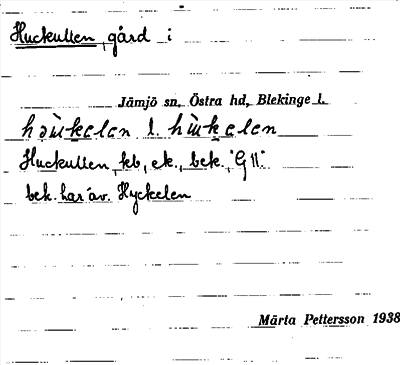 Huckullen, gård i
Jämjö sn, Östra hd, Blekinge l.
Huckullen, kb, ek., bek., "G11"
bek. har äv. Hyckelen
Märta Pettersson 1938